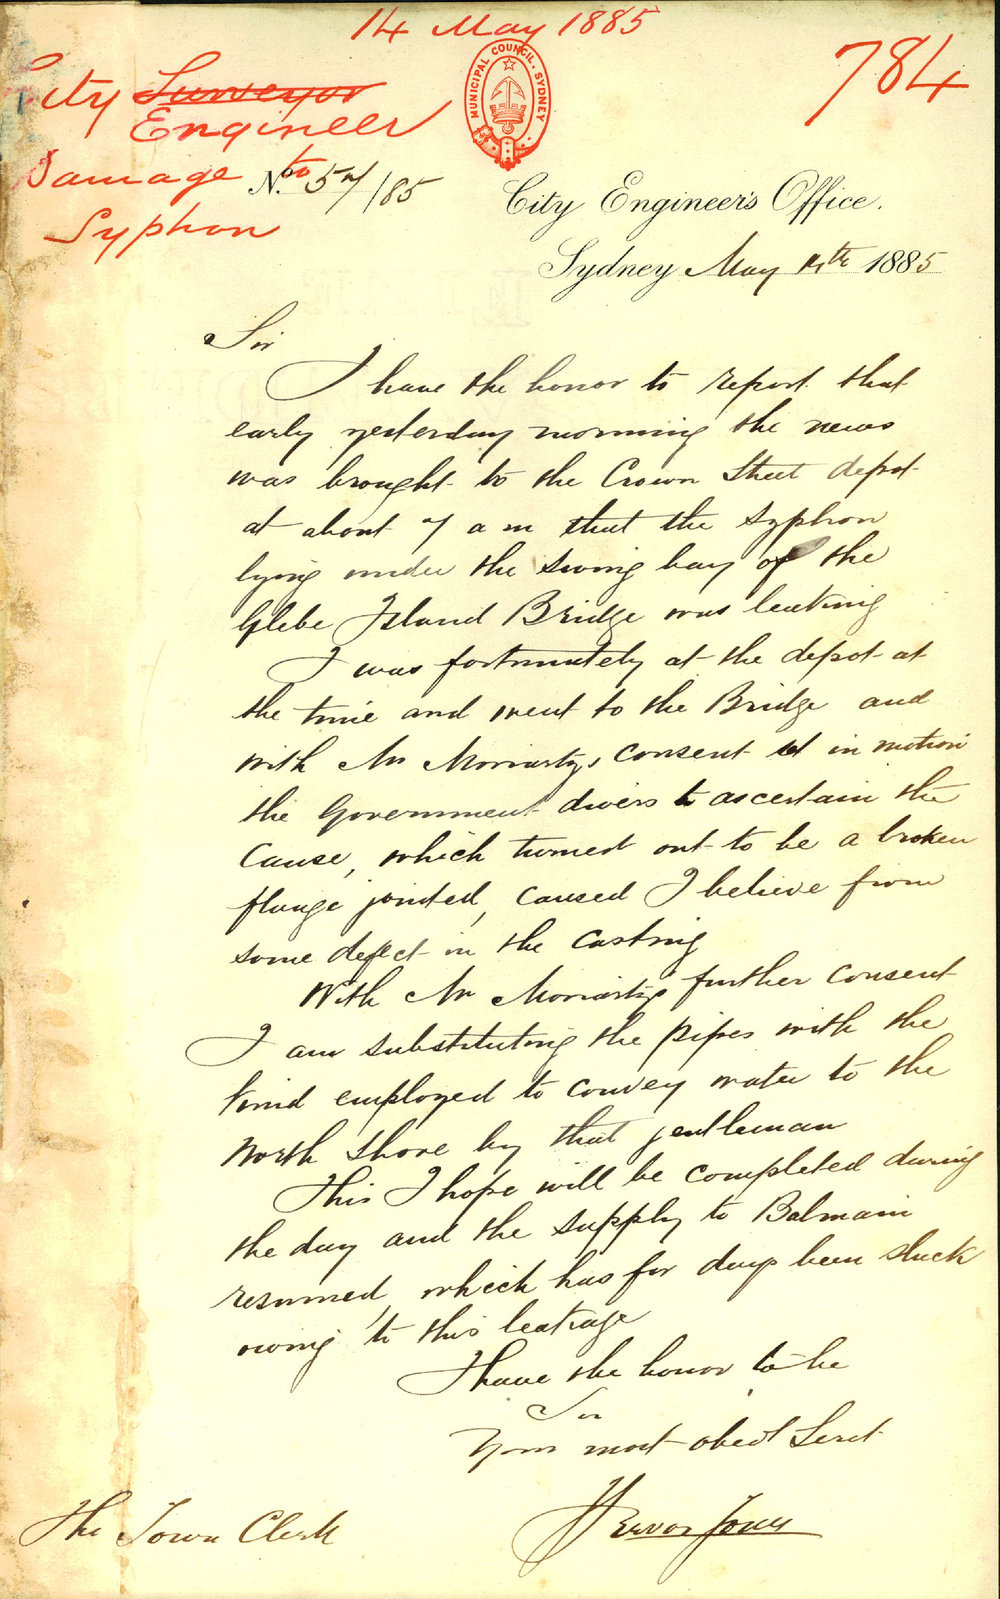 14 May 1885
784
City Surveyor
Engineer
Damage to
Syphon
MUNICIPAL COUNCIL. SYDNEY
No. 57/85
City Engineer's Office.
Sydney May 14th 1885
Sir
I have the honor to report that
early yesterday morning the news
was brought to the Crown Street depot
at about 7 a m that the syphon
lying under the swing bay of the
Glebe Island Bridge was leaking
I was fortunately at the depot at
the time and went to the Bridge and
with Mr Moriartys consent set in motion
the Government divers to ascertain the
cause, which turned out to be a broken
flange jointed, caused I believe from
some defect in the casting
With Mr Moriartys further consent
I am substituting the pipes with the
kind employed to convey water to the
North Shore by that gentleman
This I hope will be completed during
the day and the supply to Balmain
resumed, which has for days been slack
owing to this leakage
I have the honor to be
Sir
Your most obedt Servt
Trevor Jones
The Town Clerk